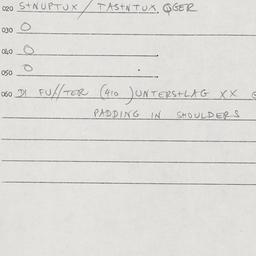 020 S+NUPTUX / TAS+NTUX, QGER
030 O
040 O
050 O
060 DI FU//TER (410) UNTERS+LAG XX
PADDING IN SHOULDERS